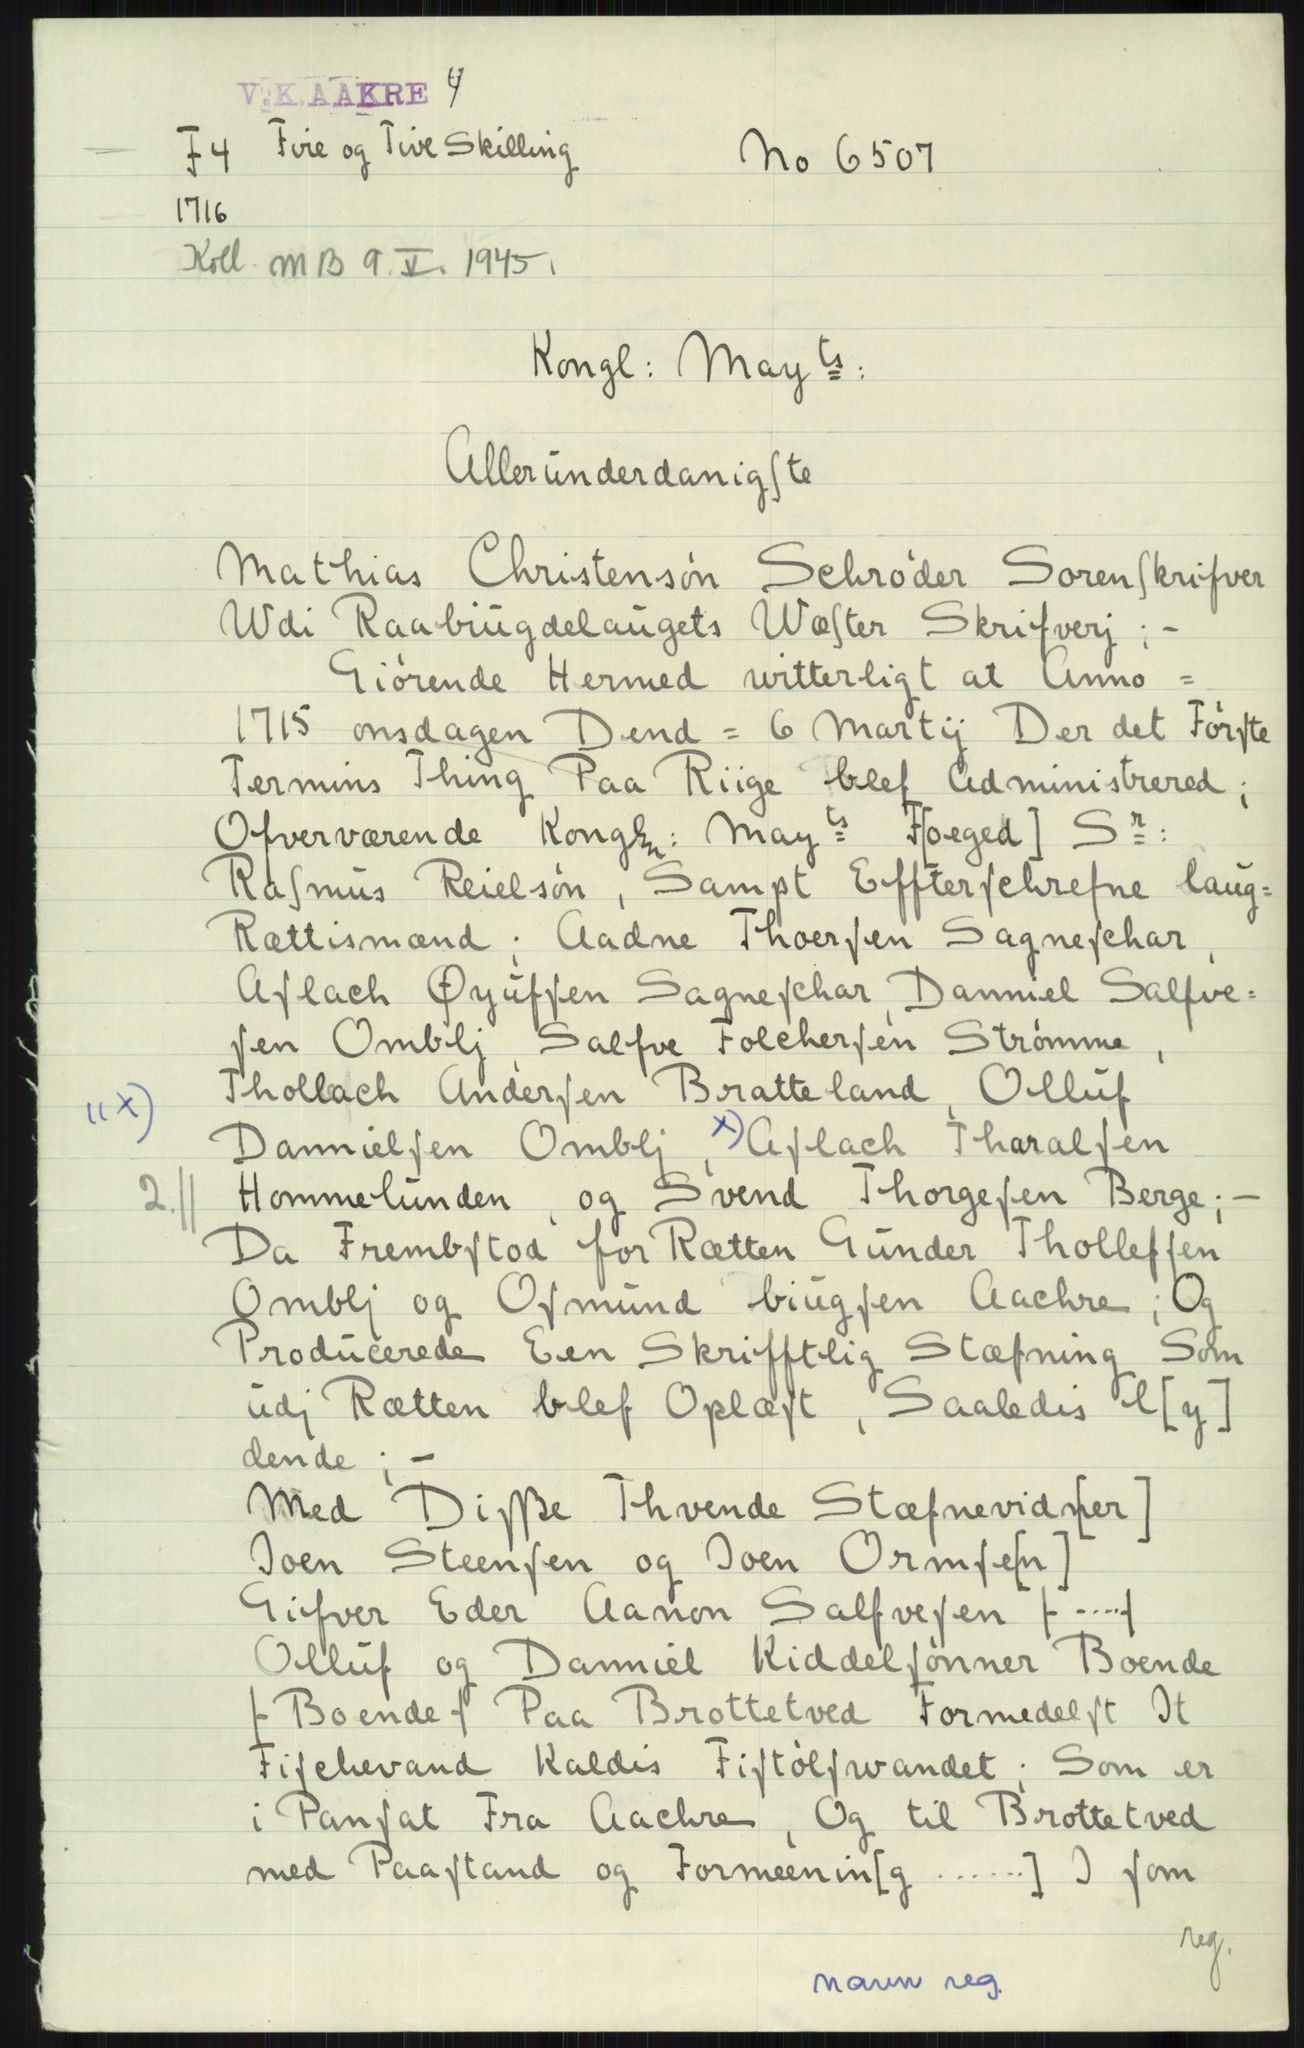 V.K. AAKRE 4
F4 Fire og Tive Skilling No 6507
1716
Koll. MB 9. V. 1945.
Kongl: Mayts:
Alleründerdanigſte
Mathias Christensón Schróder Sorenſkrifver
Udi Raabiügdelaügets Wæſter Skrifverj; -
Giórende Hermed witterligt at Anno =
1715 onsdagen Dend = 6 Martij Der det Fórſte
Termins Thing Paa Riige blef Administrered;
Ofverværende Kongln: Mayts F[oeged] Sr:
Raſmüs Reielsón, Sampt Effterſchrefne laüg=
Rættismænd; Aadne Thoerſen Sagneſchar,
Aſlach Øyüfſen Sagneſchar, Danniel Salfve=
ſen Omblj, Salfve Folcherſen Strømme,
Thollach Anderſen Bratteland, Ollüf
"x)
Dannielſen Omblj, x) Aſlach Tharalſen
2.//
Hommelünden, og Svend Thorgeſen Berge; -
Da Frembſtod for Rætten Günder Tholleſſen
Omblj og Oſmünd biügſen Aachre; Og
Prodücerede Een Skrifftlig Stæfning Som
üdj Rætten blef Oplæſt, Saaledis l[y]
dende; -
Med Diſſe Thvende Stæfnevid[ner]
Joen Steenſen og Joen Ormſe[n]
Gifver Eder Aanon Salfveſen [-....]
Ollüf og Danniel Kiddelſónner Boende
[-Boende-] Paa Brottetved Formedelſt It
Fiſchevand Kaldis Fiſtólſwandet; Som er
i Panſat Fra Aachre, Og til Brottetved
med Paaſtand og Formeenin[g ......] I ſom
reg.
navn reg.